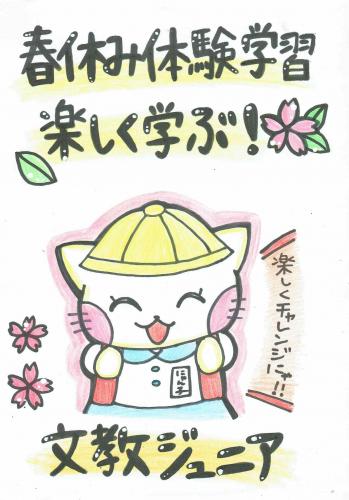 春休み体験学習
楽しく学ぶ!
楽しくチャレンジにゃ!!
にゃん子
文教ジュニア